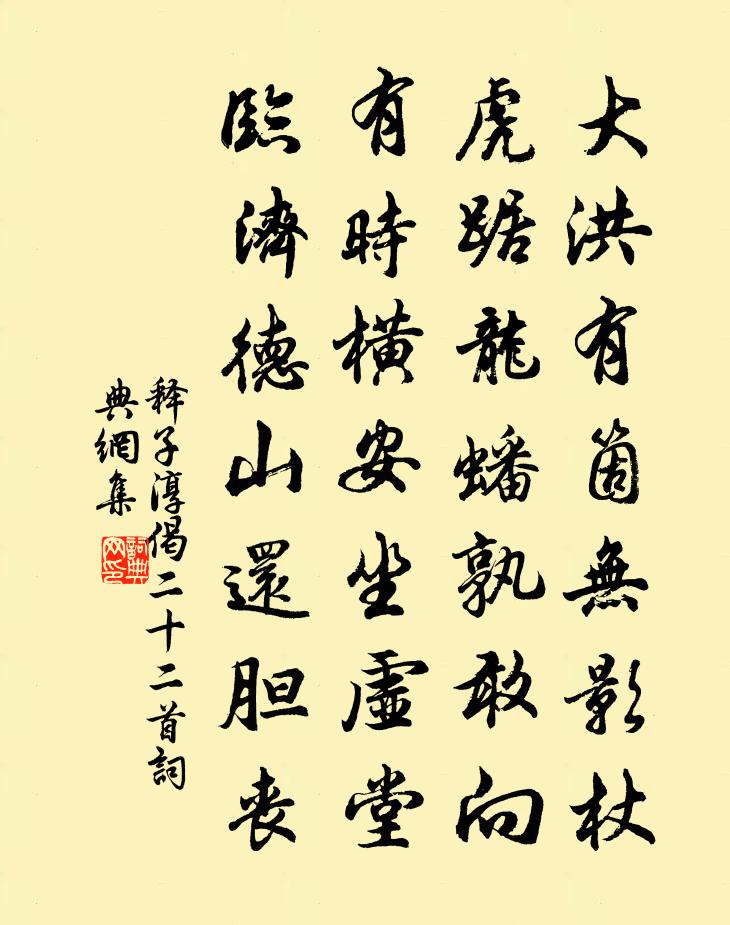 大洪有箇無影杖
虎踞龍蟠孰敢向
有時橫安坐虛堂
臨濟德山還胆丧
释子淳偈二十二首詞
典網集
詞典
网